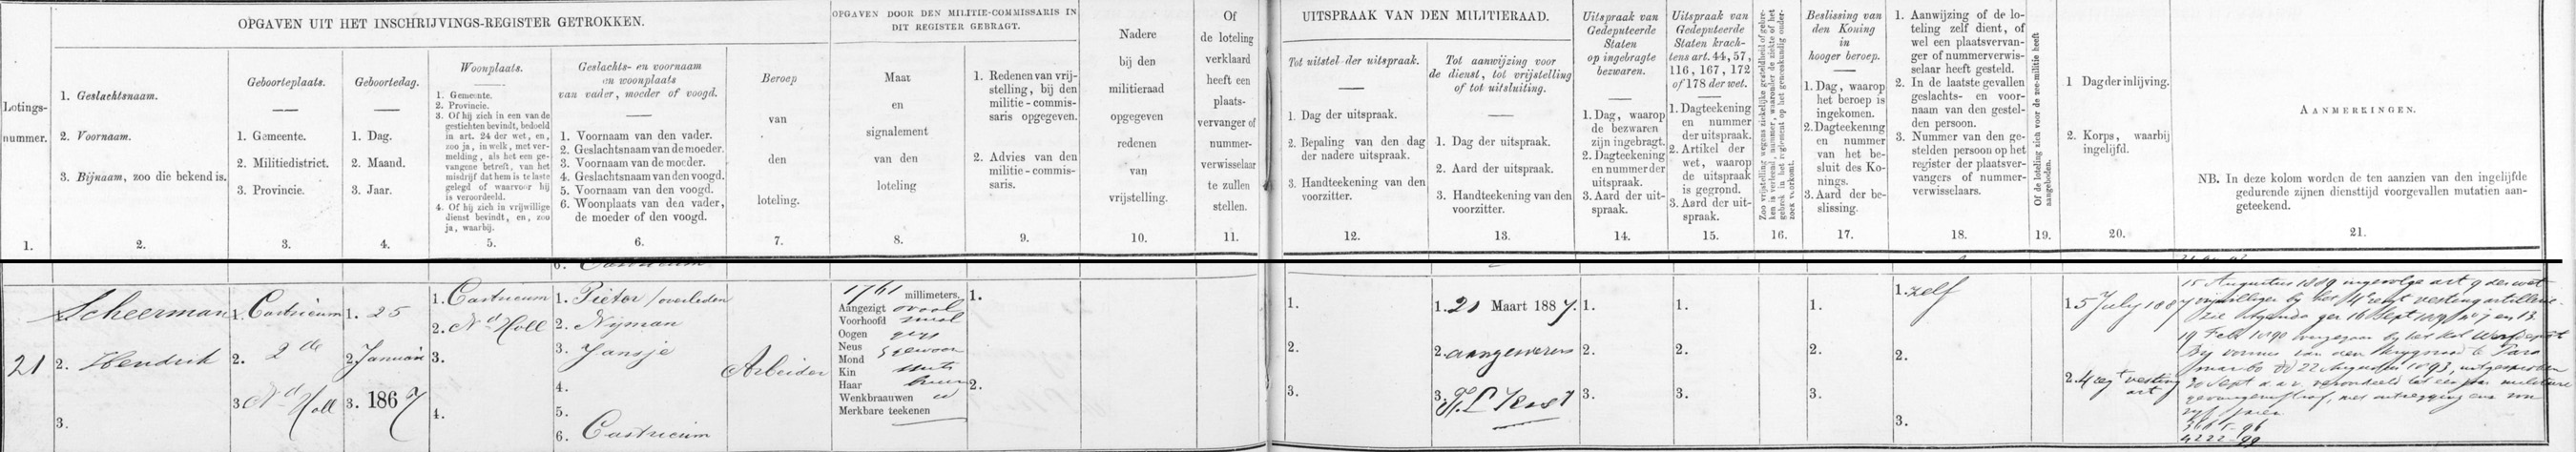 OPGAVEN UIT HET INSCHRIJVINGS-REGISTER GETROKKEN.
OPGAVEN DOOR DEN MILITIE-COMMISSARIS IN
DIT REGISTER GEBRAGT.
Lotings-
nummer.
1.
1. Geslachtsnaam.
2. Voornaam.
3. Bijnaam, zoo die bekend is.
2.
Geboorteplaats.
1. Gemeente.
2. Militiedistrict.
3. Provincie.
3.
Geboortedag.
1. Dag.
2. Maand.
3. Jaar.
4.
Woonplaats.
1. Gemeente.
2. Provincie.
3. Of hij zich in een van de
gestichten bevindt, bedoeld
in art. 24 der wet, en,
zoo ja, in welk, met ver-
melding, als het een ge-
vangene betreft, van het
misdrijf dat hem is te laste
gelegd of waarvoor hij
is veroordeeld.
4. Of hij zich in vrijwillige
dienst bevindt, en, zoo
ja, waarbij.
5.
Geslachts- en voornaam
en woonplaats
van vader, moeder of voogd.
1. Voornaam van den vader.
2. Geslachtsnaam van de moeder.
3. Voornaam van de moeder.
4. Geslachtsnaam van den voogd.
5. Voornaam van den voogd.
6. Woonplaats van den vader,
de moeder of den voogd.
6.
Beroep
van
den
loteling.
7.
Maat
en
signalement
van den
loteling
8.
1. Redenen van vrij-
stelling, bij den
militie-commis-
saris opgegeven.
2. Advies van den
militie-commis-
saris.
9.
Nadere
bij den
militieraad
opgegeven
redenen
van
vrijstelling.
10.
Of
de loteling
verklaard
heeft een
plaats-
vervanger of
nummer-
verwisselaar
te zullen
stellen.
11.
UITSPRAAK VAN DEN MILITIERAAD.
Tot uitstel der uitspraak.
1. Dag der uitspraak.
2. Bepaling van den dag
der nadere uitspraak.
3. Handteekening van den
voorzitter.
12.
Tot aanwijzing voor
de dienst, tot vrijstelling
of tot uitsluiting.
1. Dag der uitspraak.
2. Aard der uitspraak.
3. Handteekening van den
voorzitter.
13.
Uitspraak van
Gedeputeerde
Staten
op ingebragte
bezwaren.
1. Dag, waarop
de bezwaren
zijn ingebragt.
2. Dagteekening
en nummer der
uitspraak.
3. Aard der uit-
spraak.
14.
Uitspraak van
Gedeputeerde
Staten krach-
tens art. 44, 57,
116, 167, 172
of 178 der wet.
1. Dagteekening
en nummer
der uitspraak.
2. Artikel der
wet, waarop
de uitspraak
is gegrond.
3. Aard der uit-
spraak.
15.
16.
Beslissing van
den Koning
in
hooger beroep.
1. Dag, waarop
het beroep is
ingekomen.
2. Dagteekening
en nummer
van het be-
sluit des Ko-
nings.
3. Aard der be-
slissing.
17.
1. Aanwijzing of de lo-
teling zelf dient, of
wel een plaatsvervan-
ger of nummerverwis-
selaar heeft gesteld.
2. In de laatste gevallen
geslachts- en voor-
naam van den gestel-
den persoon.
3. Nummer van den ge-
stelden persoon op het
register der plaatsver-
vangers of nummer-
verwisselaars.
18.
Of de loteling zich voor de zee-militie heeft
aangeboden.
19.
1 Dag der inlijving.
2. Korps, waarbij
ingelijfd.
20.
AANMERKINGEN.
NB. In deze kolom worden de ten aanzien van den ingelijfde
gedurende zijnen diensttijd voorgevallen mutatien aan-
geteekend.
21.
21
Scheerman
2. Hendrik
3.
1. Castricum
2. 2de
3 Nd Holl
1. 25
2. Januari
3. 1867
1. Castricum
2. Nd Holl
3.
4.
6. Castricum
1. Pieter / overleden
2. Nijman
3. Jansje
4.
5.
6. Castricum
Arbeider
1761 millimeters.
Aangezigt ovaal
Voorhoofd smal
Oogen grijs
Neus
Mond } gewoon
Kin
Haar bruin
Wenkbraauwen id
Merkbare teekenen
1.
2.
1.
2.
3.
1. 21 Maart 1887.
2. aangewezen
3.
1.
2.
3.
1.
2.
3.
1.
2.
3.
1. zelf
2.
3.
1 5 July 1887
2. 4 regt vesting
art
15 Augustus 1889 ingevolge art 9 der wet
vrijwilliger bij het 4 regt vesting artillerie.